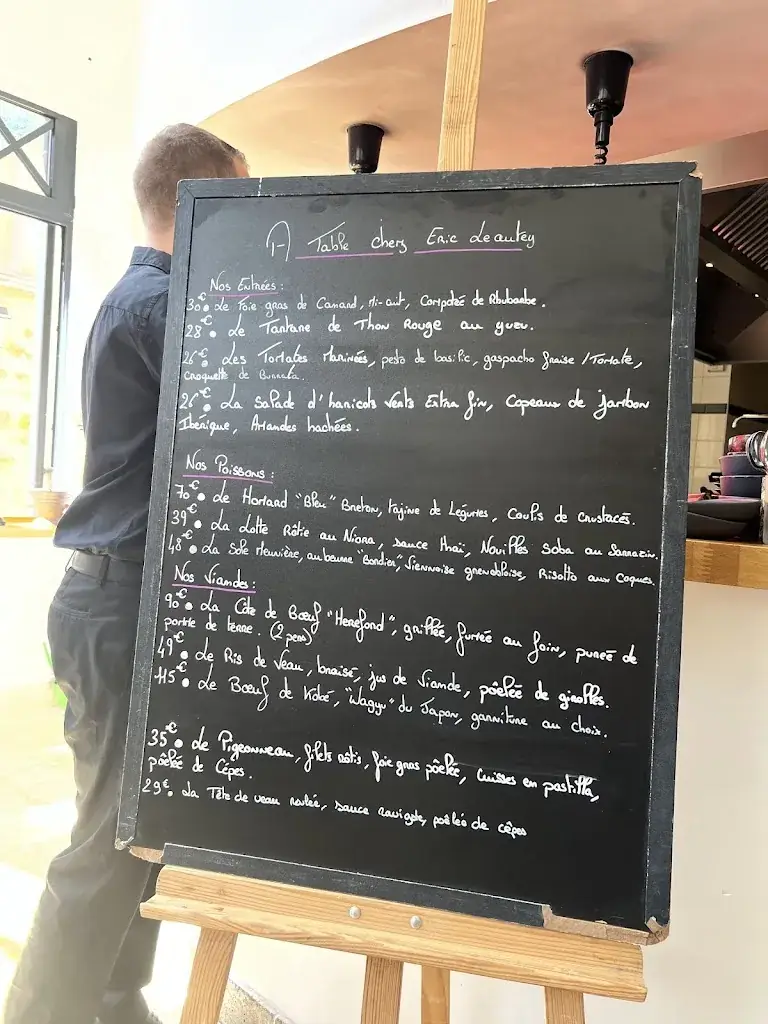 A Table chez Eric Leautey
Nos Entrées :
30€ • Le Foie gras de Canard, Mi-cuit, Compotée de Rhubarbe.
28€ • Le Tartare de Thon Rouge au yuzu.
26€ • Les Tomates Marinées, pesto de basilic, gaspacho fraise / Tomate,
Croquette de Burrata.
26€ • La Salade d'haricots verts Extra fin, Copeaux de Jambon
Ibérique, Amandes hachées.
Nos Poissons :
70€ • Le Homard "Bleu" Breton, Tajine de Légumes, Coulis de crustacés.
39€ • La Lotte Rôtie au Niora, sauce thaï, Nouilles Soba au Sarrazin.
48€ • La Sole Meunière, au beurre "Bordier", Viennoise grenobloise, Risotto aux Coques.
Nos Viandes :
90€ • La Côte de Bœuf "Hereford", grillée, fumée au foin, purée de
pomme de terre. (2 pers)
49€ • Le Ris de Veau, braisé, jus de Viande, pôelée de girolles.
115€ • Le Bœuf de Kobé, "Wagyu" du Japon, garniture au choix.
35€ • Le Pigeonneau, filets rôtis, foie gras pôelée, Cuisses en pastilla,
pôelée de Cèpes.
29€ • La Tête de veau roulée, sauce ravigote, pôelée de cêpes